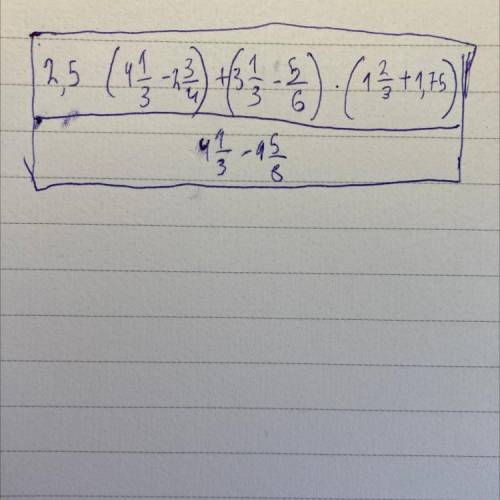 2,5 (4 1/3 - 2 3/4) + (3 1/3 - 5/6) · (1 2/3 + 1,75)
4 1/3 - 1 5/8